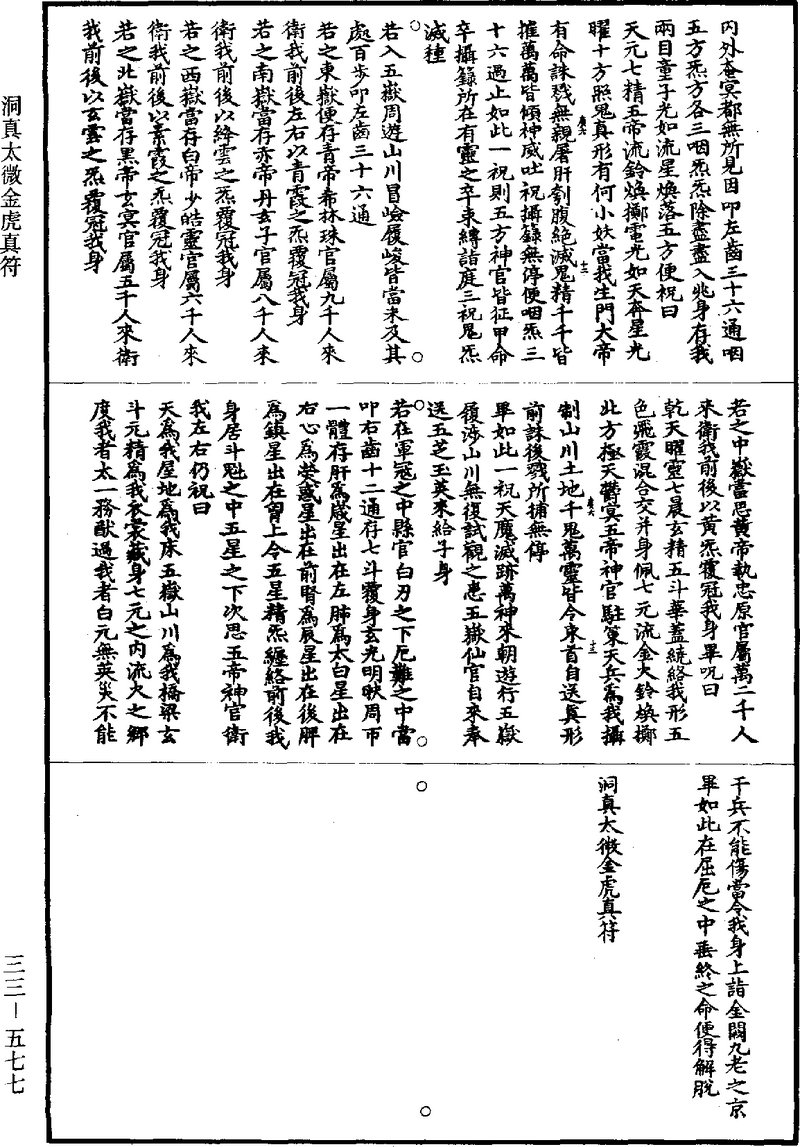 洞真太微金虎真符
三三-五七七
內外奄冥都無所見因叩左齒三十六通咽
五方炁方各三咽炁炁除盡盡入兆身存我
兩目童子光如流星煥落五方便祝曰
天元七精五帝流鈴煥擲電光如天奔星光
曜十方照鬼真形有何小妖當我生門大帝
有命誅戮無親屠肝刳腹絕滅鬼精千千皆
摧萬萬皆傾神威吐祝攝錄無停便咽炁三
十六過止如此一祝則五方神官皆征甲命
卒攝錄所在有靈之卒束縛詣庭三祝鬼炁
滅種
若入五嶽周遊山川冒嶮履峻皆當未及其
處百步叩左齒三十六通
若之東嶽便存青帝希林珠官屬九千人來
衛我前後左右以青霞之炁覆冠我身
若之南嶽當存赤帝丹玄子官屬八千人來
衛我前後以絳雲之炁覆冠我身
若之西嶽當存白帝少皓靈官屬六千人來
衛我前後以素霞之炁覆冠我身
若之北嶽當存黑帝玄冥官屬五千人來衛
我前後以玄雲之炁覆冠我身
若之中嶽當思黄帝執忠原官屬萬二千人
來衛我前後以黄炁覆冠我身畢呪曰
乾天曜靈七晨玄精五斗華蓋統絡我形五
色飛霞混合交并身佩七元流金火鈴煥擲
北方極天鬱冥五帝神官駐策天兵為我攝
制山川土地千鬼萬靈皆令束首自送真形
前誅後戮所捕無停
畢如此一祝天魔滅跡萬神來朝遊行五嶽
履涉山川無復試觀之患五嶽仙官自來奉
送五芝玉英來給子身
若在軍寇之中縣官白刃之下厄難之中當
叩右齒十二通存七斗覆身玄光明映周帀
一體存肝為歲星出在左肺為太白星出在
右心為熒惑星出在前腎為辰星出在後脾
為鎮星出在胷上令五星精炁纏絡前後我
身居斗魁之中五星之下次思五帝神官衛
我左右仍祝曰
天為我屋地為我床五嶽山川為我橋梁玄
斗元精為我衣裳藏身七元之内流火之鄉
度我者太一務猷過我者白元無英災不能
干兵不能傷當令我身上詣金闕九老之京
畢如此在屈厄之中垂終之命便得解脫
洞真太微金虎真符